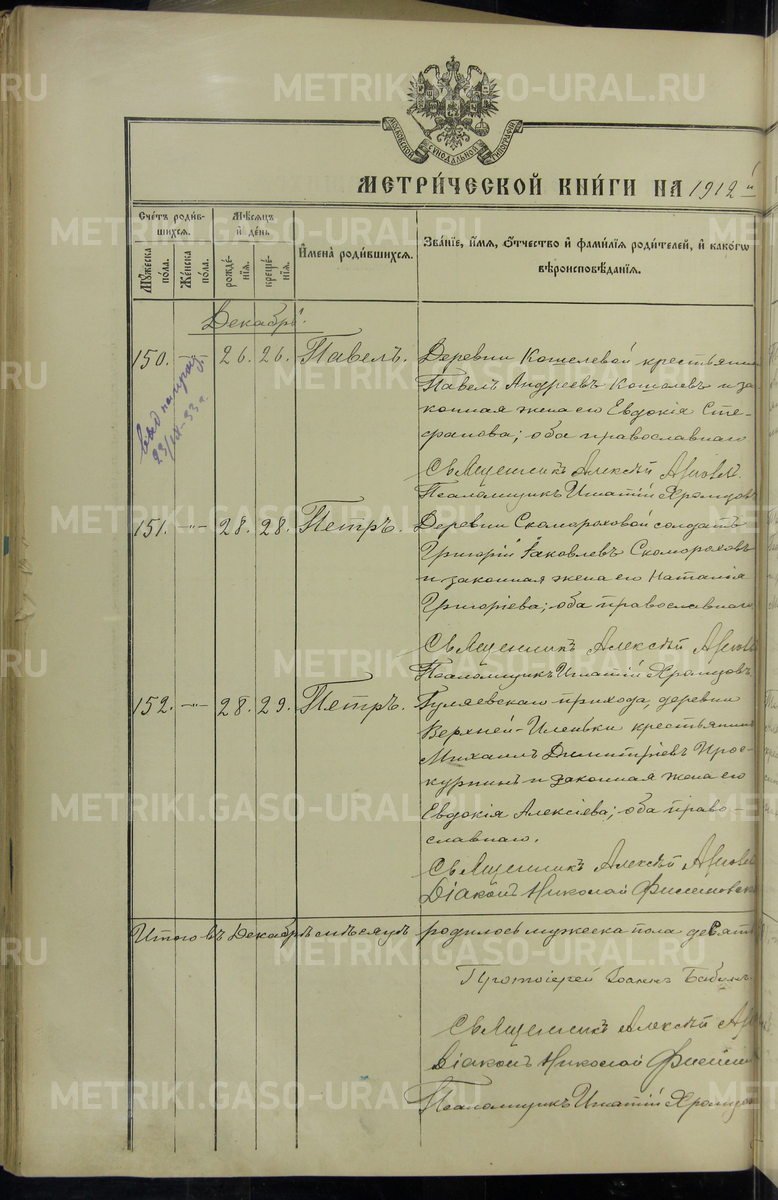 МОСКОВСКОЙ СѴНОДАЛЬНОЙ ТИПОГРАФІИ
МЕТРИ́ЧЕСКОЙ КНИ́ГИ НА 1912 й
Сче́тъ роди́вшихся.
Му́жеска по́ла.
Же́нска по́ла.
Мѣ́сяцъ и де́нь
рожде́нїя.
креще́нїя.
Имена̀ роди́вшихся.
Зва́нїе, и́мя, о́тчество и фами́лїя роди́телей, и како́гѡ
вѣроисповѣ́данїя.
Декабрь.
150. 26. 26. Павелъ. Деревни Кошелевой крестьянин
Павелъ Андреевъ Кошелевъ и за-
конная жена его Евдокія Сте-
фанова; оба православнаго
23/IX-33 г.
Священникъ Алексѣй
Псаломщикъ Игнатій Храмцовъ
151. -"- 28. 28. Петръ. Деревни Скомороховой солдатъ
Григорій Яковлевъ Скомороховъ
и законная жена его Наталія
Григоріева; оба православнаго
Священникъ Алексѣй
Псаломщикъ Игнатій Храмцовъ
152. -"- 28. 29. Петръ. Гуляевскаго прихода, деревни
Верхней-Иленки крестьянинъ
Михаилъ Димитріевъ Прос-
курнинъ и законная жена его
Евдокія Алексіева; оба право-
славнаго.
Священникъ Алексѣй
Діаконъ Николай
Итого въ Декабрѣ мѣсяцѣ родилось мужеска пола девять
Протоіерей Іоаннъ
Священникъ Алексѣй
Діаконъ Николай
Псаломщикъ Игнатій Храмцов
METRIKI.GASO-URAL.RU